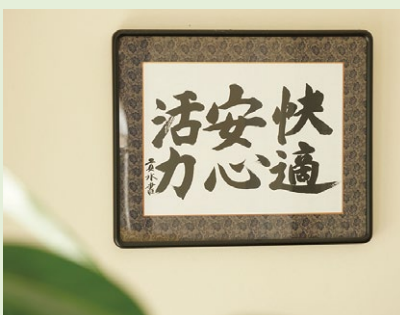 快適
安心
活力